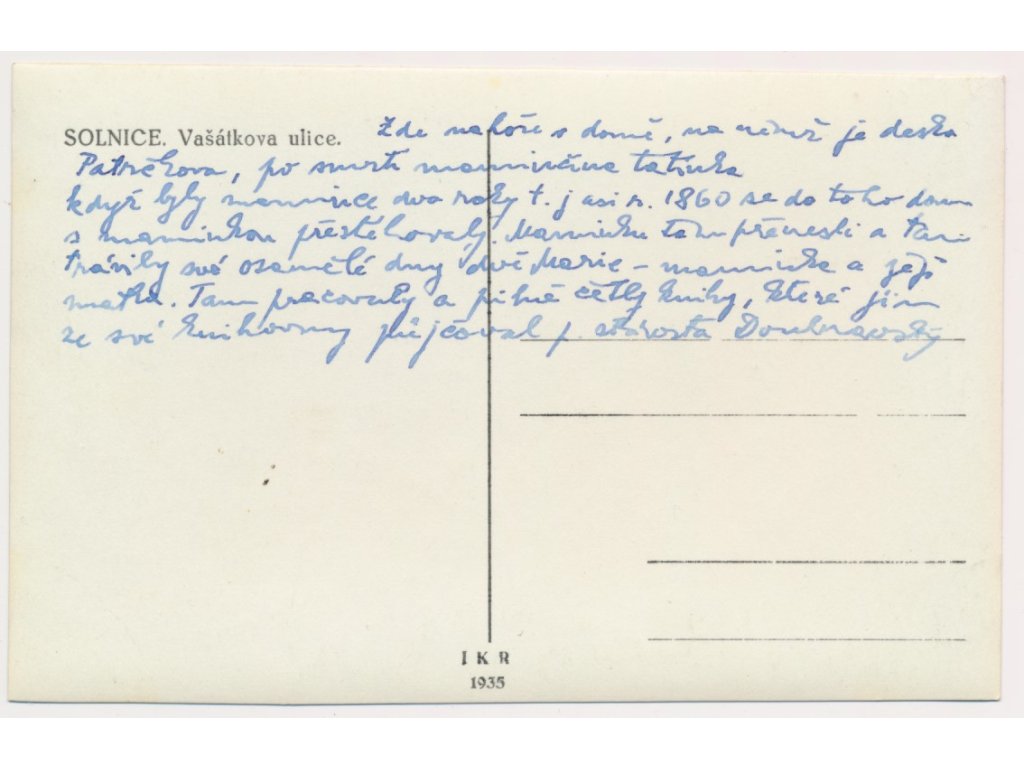 SOLNICE. Vašátkova ulice.
Zde nahoře v domě, na němž je deska
Patrčkova, po smrti maminčina tatínka
když byly mamince dva roky t. j asi r. 1860 se do toho domu
s maminkou přestěhovaly. Maminku tam přenesli a tam
trávily své osamělé dny dvě Marie – maminka a její
matka. Tam pracovaly a pilně četly knihy, které jim
ze své knihovny půjčoval p. starosta Doubravský
I K R
1935